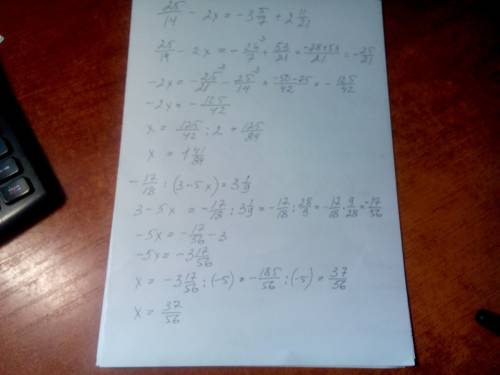 25/14 - 2x = -3 5/7 + 2 11/21
25/14 - 2x = -26/7 ³ + 53/21 = -78+53/21 = -25/21
-2x = -25/21 ² - 25/14 ³ = -50-75/42 = -125/42
-2x = -125/42
x = 125/42 : 2 = 125/84
x = 1 41/84
-17/18 : (3-5x) = 3 1/9
3-5x = -17/18 : 3 1/9 = -17/18 : 28/9 = -17/18 · 9/28 = -17/56
-5x = -17/56 - 3
-5x = -3 17/56
x = -3 17/56 : (-5) = -185/56 : (-5) = 37/56
x = 37/56